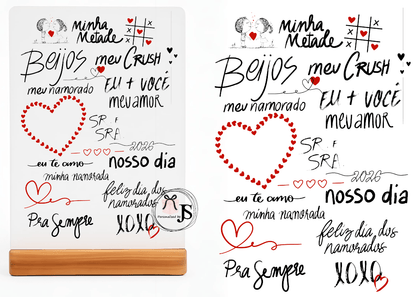 Minha
Metade
Beijos
meu CRUSH
meu namorado
EU + VOCÊ
meu amor
SR. E
SRA.
2026
eu te amo
nosso dia
minha namorada
feliz dia dos
namorados
Pra Sempre
xoxo
Personalized By
JS
Minha
Metade
Beijos
meu CRUSH
meu namorado
EU + VOCÊ
meu amor
SR. E
SRA.
2026
eu te amo
nosso dia
minha namorada
feliz dia dos
namorados
Pra Sempre
xoxo